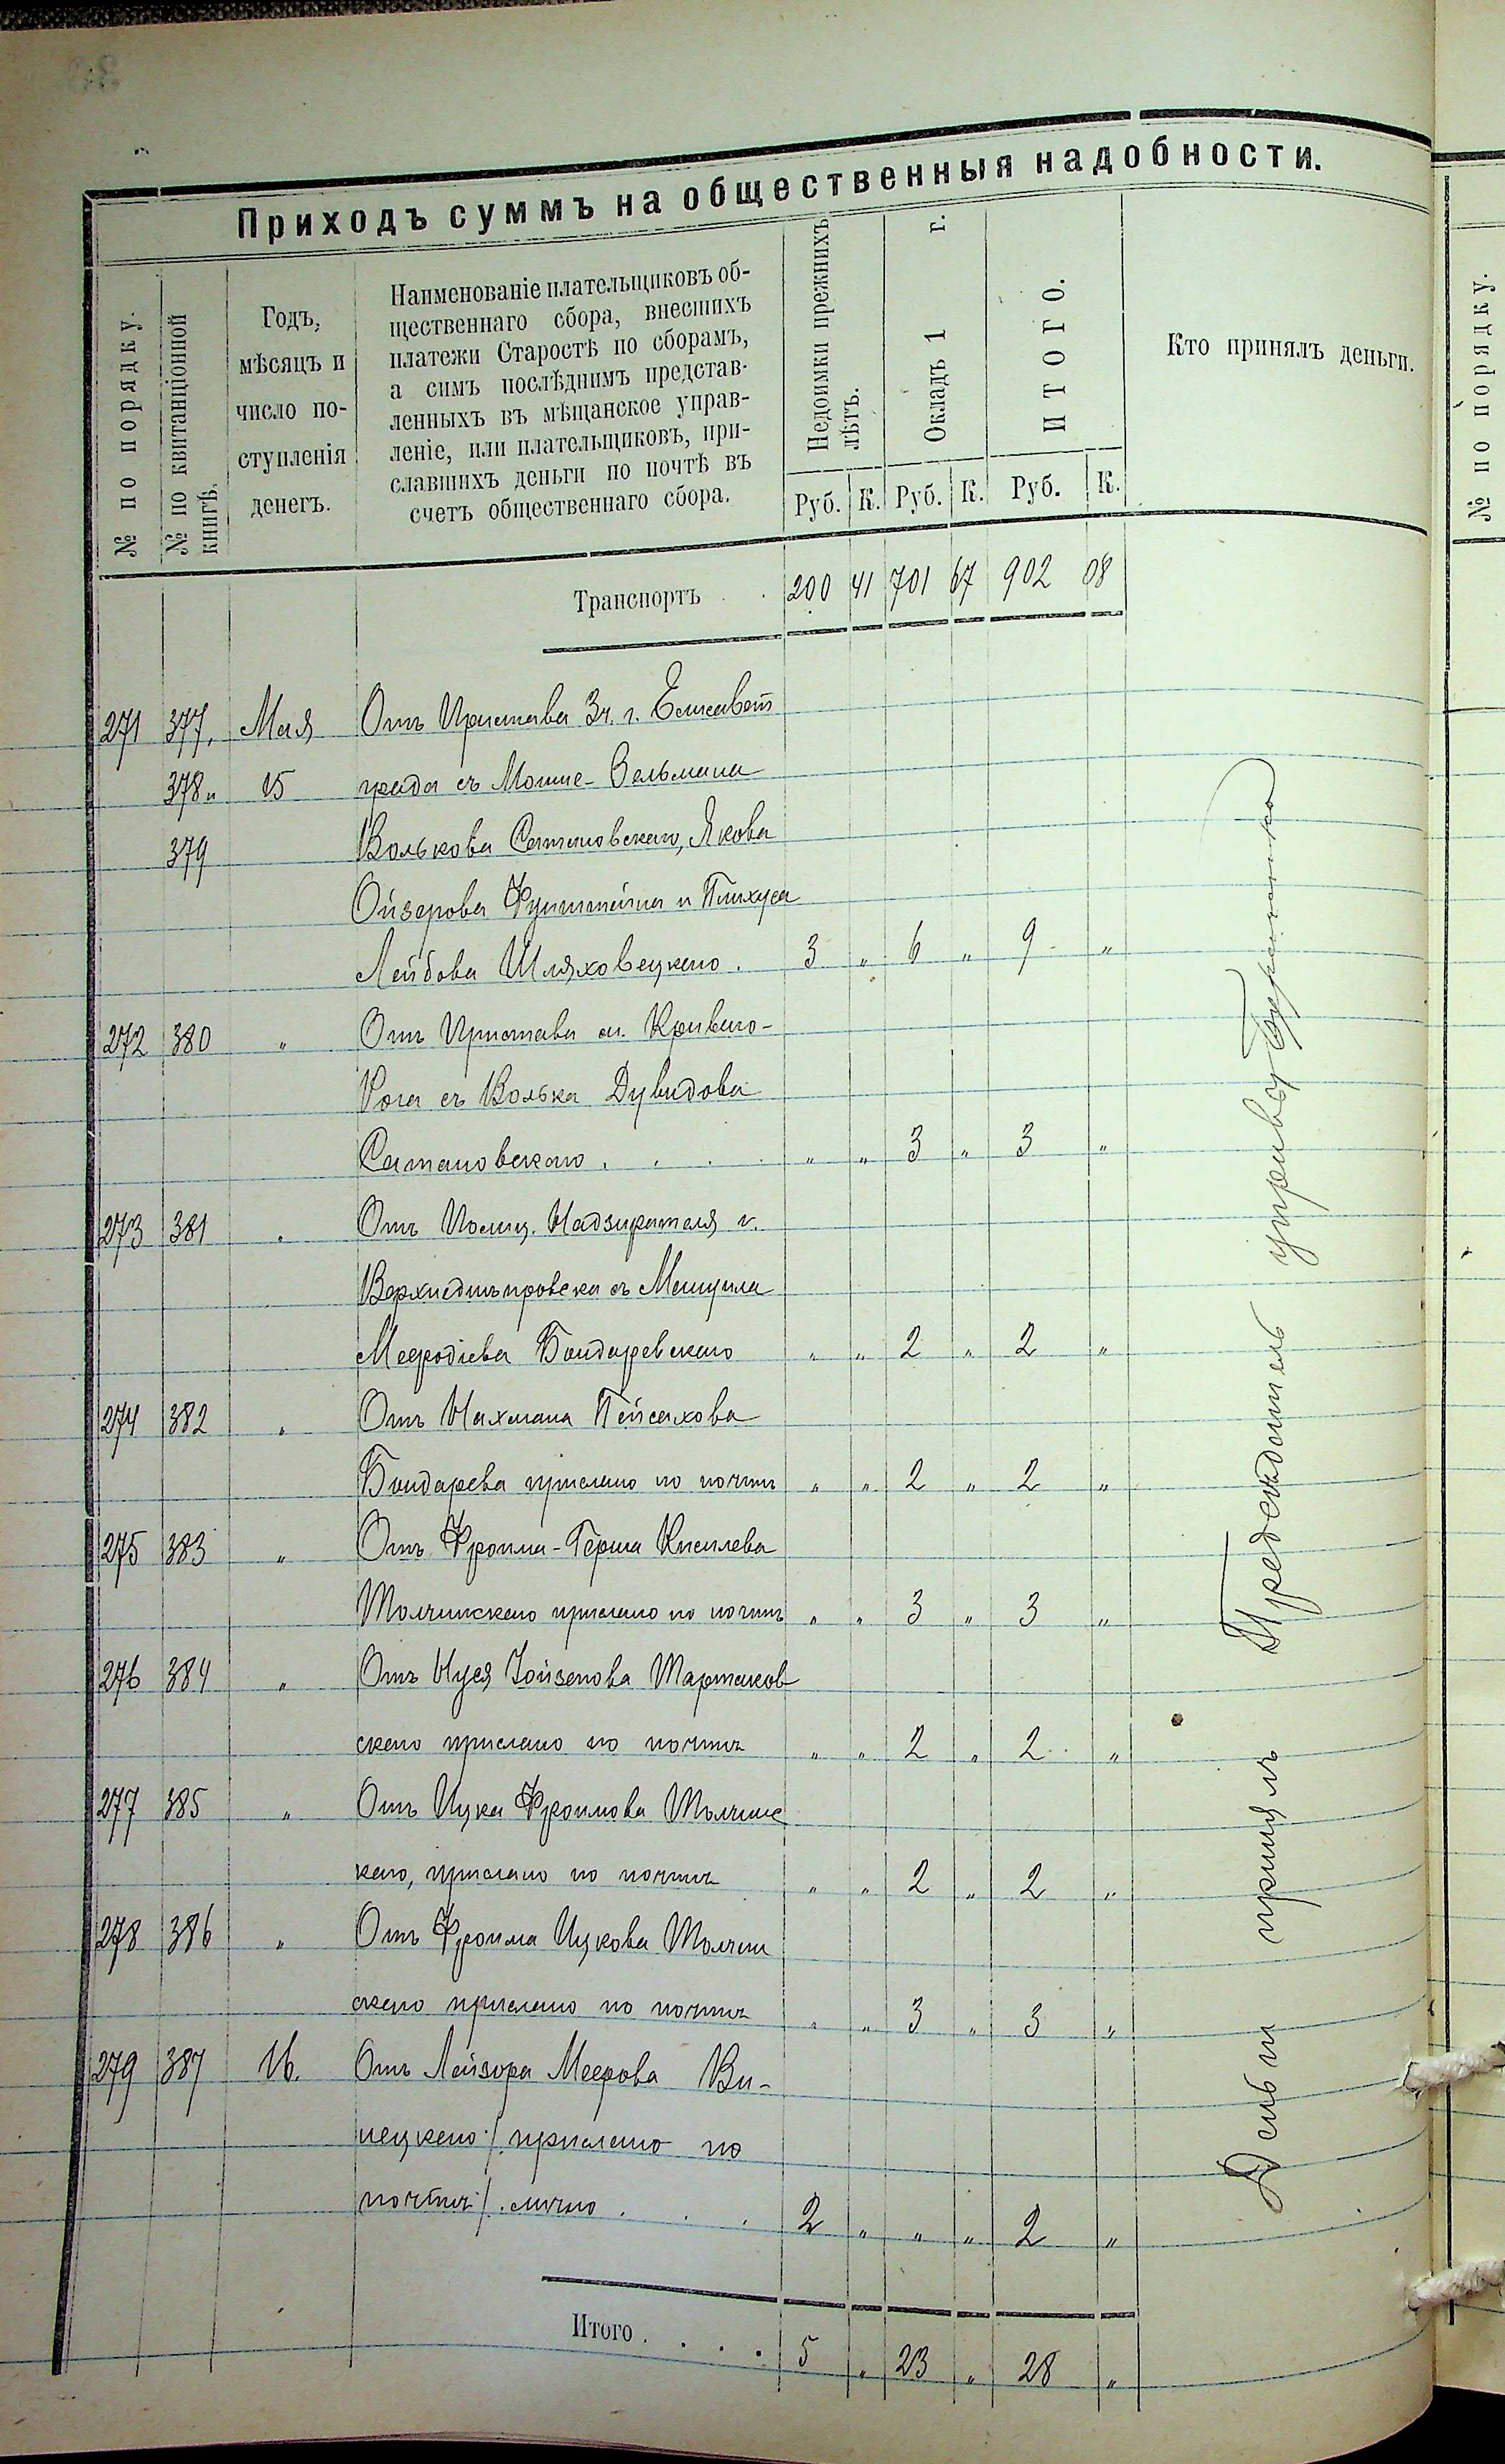 Приходъ суммъ на общественныя надобности.
№ по порядку.
№ по квитанціонной
книгѣ.
Годъ,
мѣсяцъ и
число по-
ступленія
денегъ.
Наименованіе плательщиковъ об-
щественнаго сбора, внесшихъ
платежи Старостѣ по сборамъ,
а симъ послѣднимъ представ-
ленныхъ въ мѣщанское управ-
леніе, или плательщиковъ, при-
славшихъ деньги по почтѣ въ
счетъ общественнаго сбора.
Недоимки прежнихъ
лѣтъ.
Окладъ 1 г.
ИТОГО.
Кто принялъ деньги.
Руб. К. Руб. К. Руб. К.
Транспортъ . . 200 41 701 67 902 08
271 377, Мая Отъ Пристава 3ч. г. Елисавет
378 и 15 града съ Мошке-Зельмана
379 Волькова Сатановскаго, Якова
Ойзерова и Пинхуса
Лейбова Шляховецкаго . 3 „ 6 „ 9 „
272 380 „ Отъ Пристава м. Криваго-
Рога съ Волька Дувидова
Сатановскаго . . . . „ „ 3 „ 3 „
273 381 „ Отъ Полиц. Надзирателя г.
Верхнеднѣпровска съ
Бондаревскаго „ „ 2 „ 2 „
274 382 „ Отъ Нахмана Пейсахова
Бондарева прислано по почтѣ „ „ 2 „ 2 „
275 383 „ Отъ Фроима-Герша Киселева
Толчинскаго прислано по почтѣ „ „ 3 „ 3 „
276 384 „ Отъ Нуся Іойзепова Тартаков
скаго прислано по почтѣ „ „ 2 „ 2 „
277 385 „ Отъ Ицка Фроимова Толчинс
каго, прислано по почтѣ „ „ 2 „ 2 „
278 386 „ Отъ Фроима Ицкова Толчин
скаго прислано по почтѣ „ „ 3 „ 3 „
279 387 16. Отъ Лейзора Меерова Ви-
нецкаго /. прислано по
почтѣ /. лично . . . 2 „ „ „ 2 „
Итого . . . . 5 „ 23 „ 28 „
Деньги принялъ Предсѣдатель управы
№ по порядку.